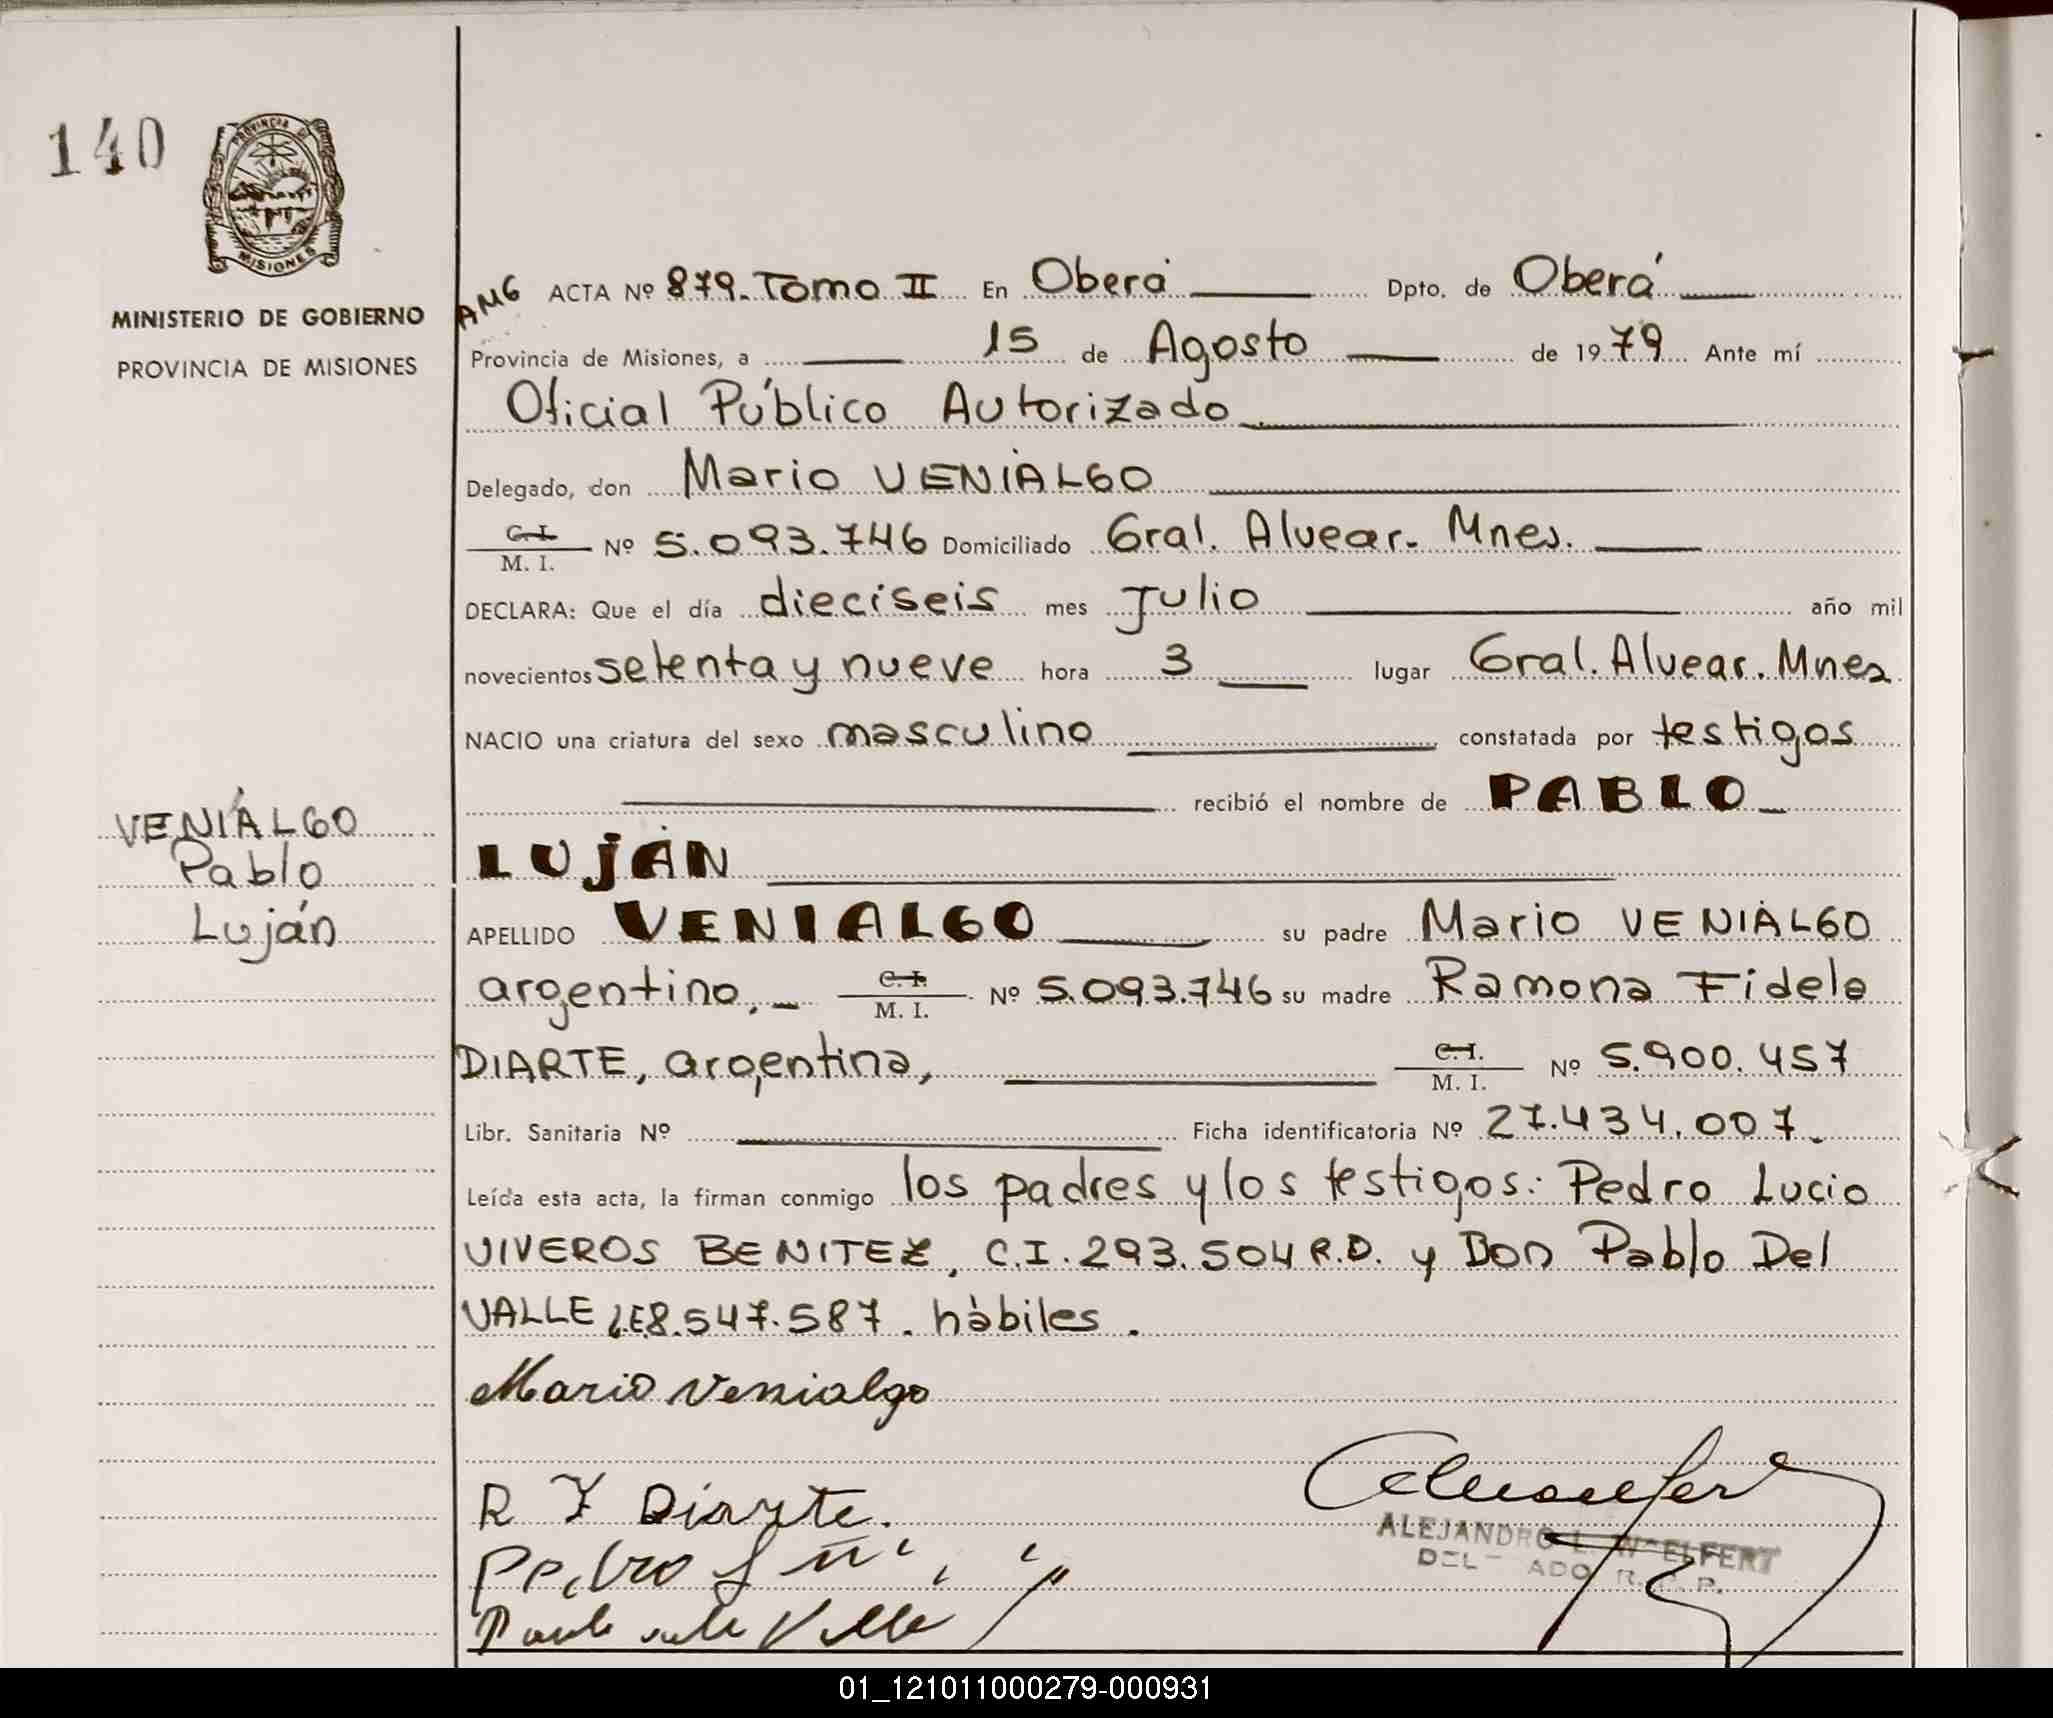 140
PROVINCIA DE
MISIONES
MINISTERIO DE GOBIERNO
PROVINCIA DE MISIONES
AMG ACTA Nº 879. Tomo II En Oberá Dpto. de Oberá
Provincia de Misiones, a 15 de Agosto de 1979 Ante mí
Oficial Público Autorizado
Delegado, don Mario VENIALGO
C. I. / M. I. Nº 5.093.746 Domiciliado Gral. Alvear. Mnes.
DECLARA: Que el día dieciseis mes Julio año mil
novecientos setenta y nueve hora 3 lugar Gral. Alvear. Mnes
NACIO una criatura del sexo masculino constatada por testigos
recibió el nombre de PABLO
LUJÁN
VENIALGO
Pablo
Luján
APELLIDO VENIALGO su padre Mario VENIALGO
argentino, C. I. / M. I. Nº 5.093.746 su madre Ramona Fidela
DIARTE, argentina, C. I. / M. I. Nº 5.900.457
Libr. Sanitaria Nº Ficha identificatoria Nº 27.434.007.
Leída esta acta, la firman conmigo los padres y los testigos: Pedro Lucio
VIVEROS BENITEZ, C.I. 293.504 R.D. y Don Pablo Del
VALLE L.E 8.547.587. hábiles.
Mario Venialgo
R F Diarte.
Pedro
Valle
ALEJANDRO L. WOELFERT
01_121011000279-000931